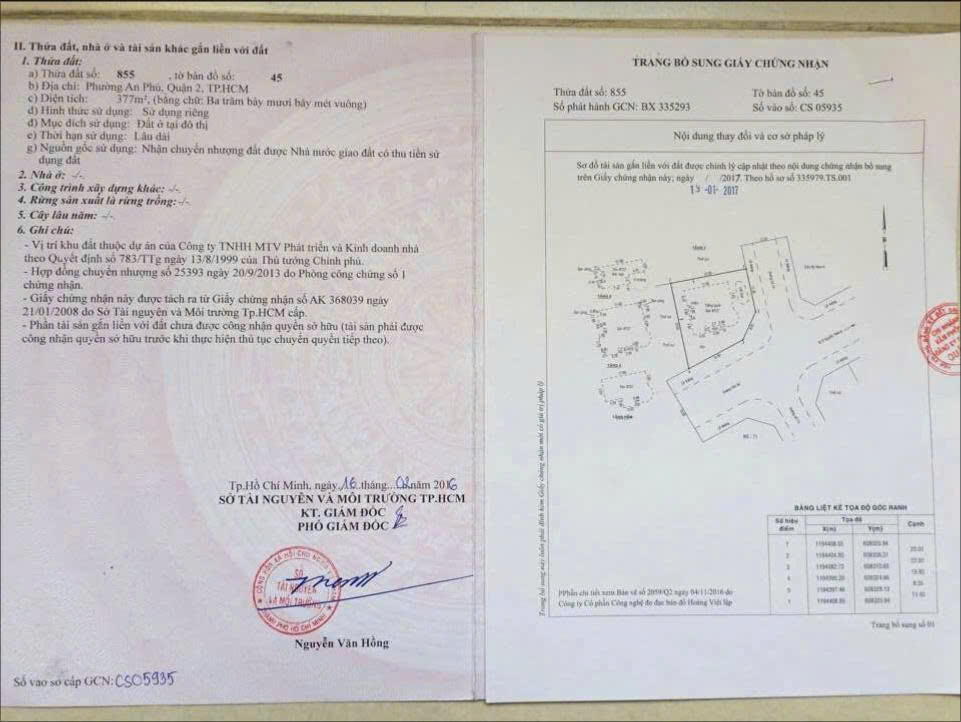 II. Thửa đất, nhà ở và tài sản khác gắn liền với đất
1. Thửa đất:
a) Thửa đất số: 855 , tờ bản đồ số: 45
b) Địa chỉ: Phường An Phú, Quận 2, TP.HCM
c) Diện tích: 377m², (bằng chữ: Ba trăm bảy mươi bảy mét vuông)
d) Hình thức sử dụng: Sử dụng riêng
đ) Mục đích sử dụng: Đất ở tại đô thị
e) Thời hạn sử dụng: Lâu dài
g) Nguồn gốc sử dụng: Nhận chuyển nhượng đất được Nhà nước giao đất có thu tiền sử
dụng đất
2. Nhà ở: -/-.
3. Công trình xây dựng khác: -/-.
4. Rừng sản xuất là rừng trồng: -/-.
5. Cây lâu năm: -/-.
6. Ghi chú:
- Vị trí khu đất thuộc dự án của Công ty TNHH MTV Phát triển và Kinh doanh nhà
theo Quyết định số 783/TTg ngày 13/8/1999 của Thủ tướng Chính phủ.
- Hợp đồng chuyển nhượng số 25393 ngày 20/9/2013 do Phòng công chứng số 1
chứng nhận.
- Giấy chứng nhận này được tách ra từ Giấy chứng nhận số AK 368039 ngày
21/01/2008 do Sở Tài nguyên và Môi trường Tp.HCM cấp.
- Phần tài sản gắn liền với đất chưa được công nhận quyền sở hữu (tài sản phải được
công nhận quyền sở hữu trước khi thực hiện thủ tục chuyển quyền tiếp theo).
Tp.Hồ Chí Minh, ngày 16 tháng 02 năm 2016
SỞ TÀI NGUYÊN VÀ MÔI TRƯỜNG TP.HCM
KT. GIÁM ĐỐC
PHÓ GIÁM ĐỐC
SỞ
TÀI NGUYÊN
VÀ MÔI TRƯỜNG
THÀNH PHỐ HỒ CHÍ MINH
Nguyễn Văn Hồng
Số vào sổ cấp GCN: CS05935
TRANG BỔ SUNG GIẤY CHỨNG NHẬN
Thửa đất số: 855 Tờ bản đồ số: 45
Số phát hành GCN: BX 335293 Số vào sổ: CS 05935
Nội dung thay đổi và cơ sở pháp lý
Sơ đồ tài sản gắn liền với đất được chỉnh lý cập nhật theo nội dung chứng nhận bổ sung
trên Giấy chứng nhận này; ngày / /2017. Theo hồ sơ số 335979.TS.001
13 -01- 2017
Trang bổ sung này luôn phải đính kèm Giấy chứng nhận mới có giá trị pháp lý
BẢNG LIỆT KÊ TỌA ĐỘ GÓC RANH
Số hiệu điểm Tọa độ Cạnh
X(m) Y(m)
1
2
3
4
5
1
Phần chi tiết xem Bản vẽ số 2059/Q2 ngày 04/11/2016 do
Công ty Cổ phần Công nghệ đo đạc bản đồ Hoàng Việt lập
Trang bổ sung số 01